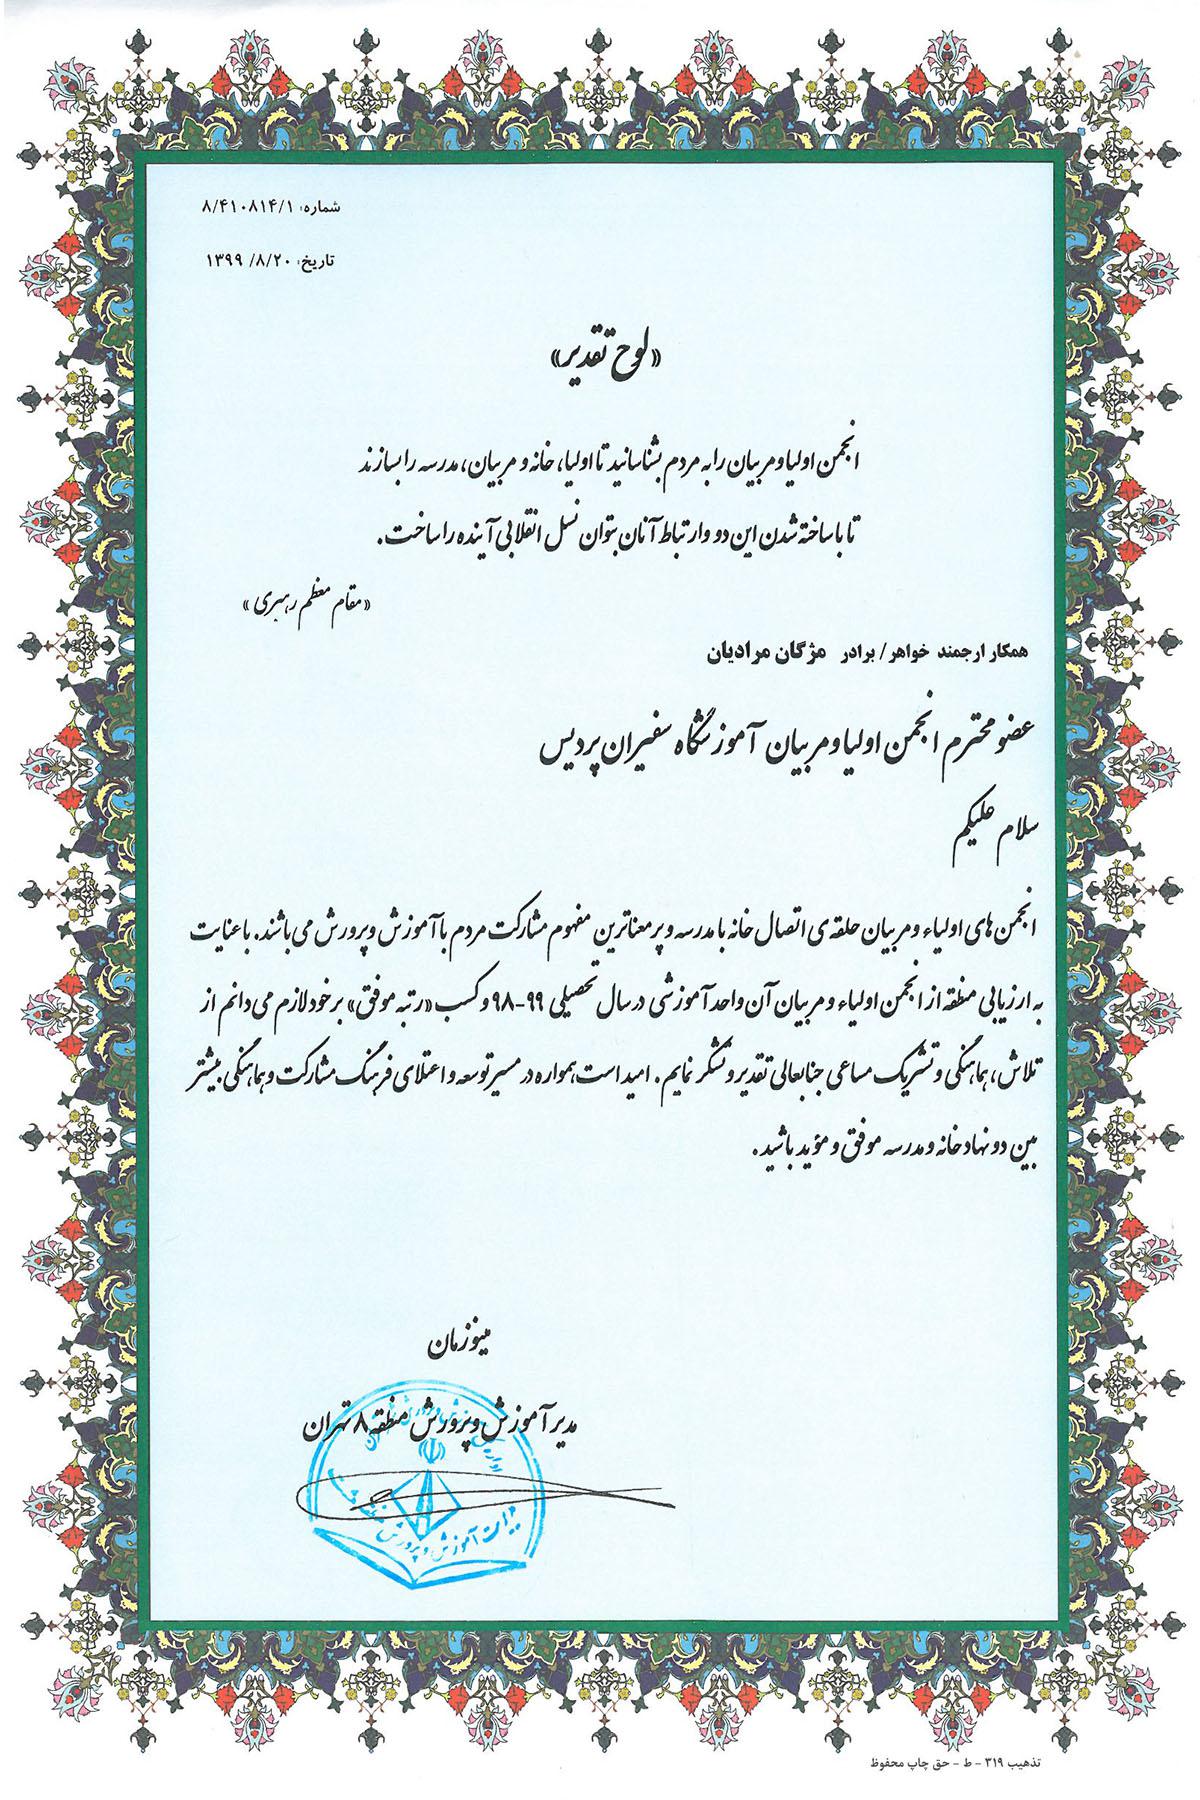 شماره: ۸/۴۱۰۸۱۴/۱
تاریخ: ۱۳۹۹/۸/۲۰
«لوح تقدیر»
انجمن اولیا و مربیان را به مردم بشناسانید تا اولیا، خانه و مربیان، مدرسه را بسازند
تا با ساخته شدن این دو و ارتباط آنان بتوان نسل انقلابی آینده را ساخت.
«مقام معظم رهبری»
همکار ارجمند خواهر/ برادر مژگان مرادیان
عضو محترم انجمن اولیا و مربیان آموزشگاه سفیران پردیس
سلام علیکم
انجمن های اولیاء و مربیان حلقه ی اتصال خانه با مدرسه و پر معناترین مفهوم مشارکت مردم با آموزش و پرورش می باشند. با عنایت
به ارزیابی منطقه از انجمن اولیاء و مربیان آن واحد آموزشی در سال تحصیلی ۹۹-۹۸ و کسب «رتبه موفق» بر خود لازم می دانم از
تلاش، هماهنگی و تشریک مساعی جنابعالی تقدیر و تشکر نمایم. امید است همواره در مسیر توسعه و اعتلای فرهنگ مشارکت و هماهنگی بیشتر
بین دو نهاد خانه و مدرسه موفق و مؤید باشید.
مینو زمان
مدیر آموزش و پرورش منطقه ۸ تهران
تذهیب ۳۱۹ - ط - حق چاپ محفوظ